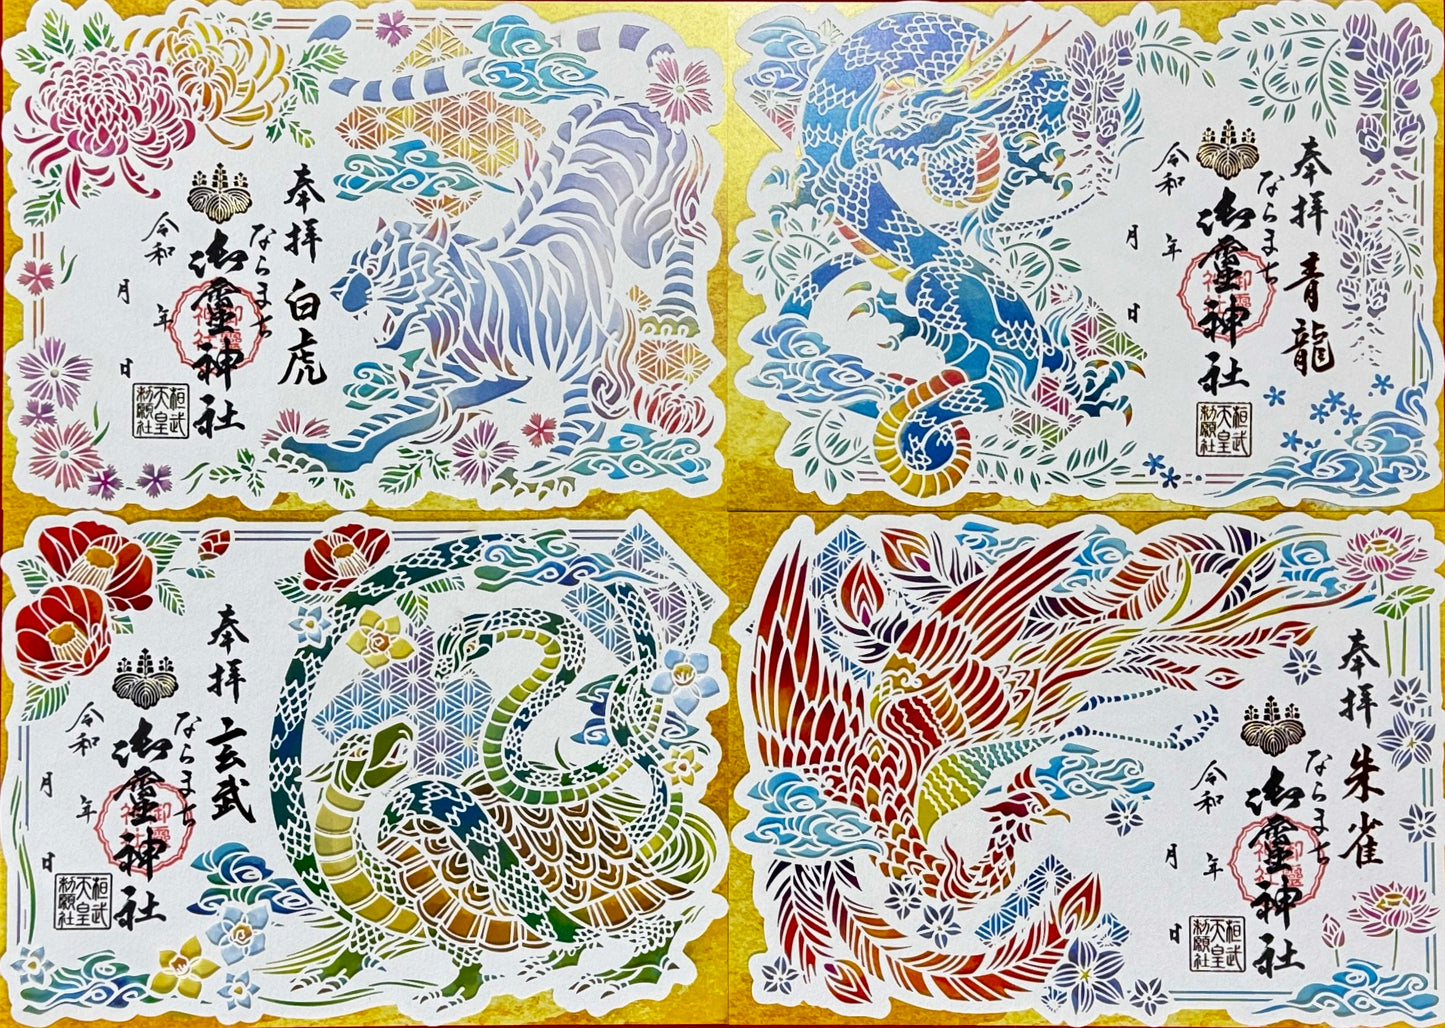 奉拝 白虎
ならまち
御霊神社
令和 年
月 日
桓武
天皇
勅願社
奉拝 青龍
ならまち
御霊神社
令和 年
月 日
桓武
天皇
勅願社
奉拝 玄武
ならまち
御霊神社
令和 年
月 日
桓武
天皇
勅願社
奉拝 朱雀
ならまち
御霊神社
令和 年
月 日
桓武
天皇
勅願社